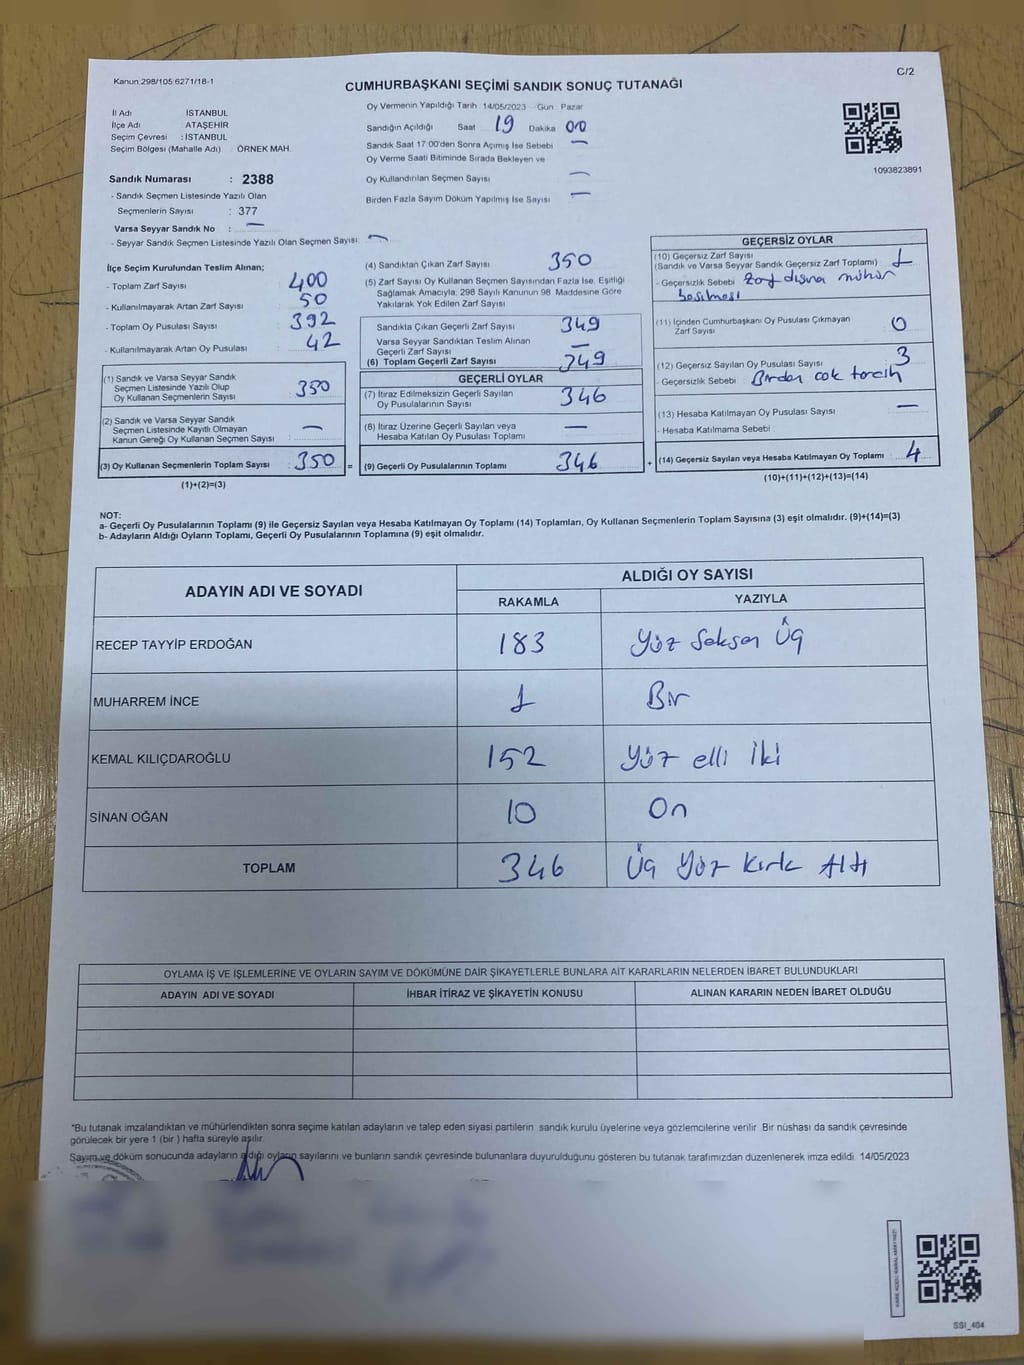 Kanun 298/105 6271/18-1
C/2
CUMHURBAŞKANI SEÇİMİ SANDIK SONUÇ TUTANAĞI
İl Adı İSTANBUL
İlçe Adı ATAŞEHİR
Seçim Çevresi : İSTANBUL
Seçim Bölgesi (Mahalle Adı) : ÖRNEK MAH.
Sandık Numarası : 2388
- Sandık Seçmen Listesinde Yazılı Olan
Seçmenlerin Sayısı : 377
Varsa Seyyar Sandık No : —
- Seyyar Sandık Seçmen Listesinde Yazılı Olan Seçmen Sayısı: —
Oy Vermenin Yapıldığı Tarih 14/05/2023 Gün : Pazar
Sandığın Açıldığı Saat 19 Dakika 00
Sandık Saat 17:00'den Sonra Açımış İse Sebebi —
Oy Verme Saati Bitiminde Sırada Bekleyen ve
Oy Kullandırılan Seçmen Sayısı —
Birden Fazla Sayım Döküm Yapılmış İse Sayısı —
1093823891
İlçe Seçim Kurulundan Teslim Alınan;
- Toplam Zarf Sayısı : 400
- Kullanılmayarak Artan Zarf Sayısı : 50
- Toplam Oy Pusulası Sayısı : 392
- Kullanılmayarak Artan Oy Pusulası : 42
(1) Sandık ve Varsa Seyyar Sandık
Seçmen Listesinde Yazılı Olup
Oy Kullanan Seçmenlerin Sayısı : 350
(2) Sandık ve Varsa Seyyar Sandık
Seçmen Listesinde Kayıtlı Olmayan
Kanun Gereği Oy Kullanan Seçmen Sayısı : —
(3) Oy Kullanan Seçmenlerin Toplam Sayısı : 350 =
(1)+(2)=(3)
(4) Sandıktan Çıkan Zarf Sayısı 350
(5) Zarf Sayısı Oy Kullanan Seçmen Sayısından Fazla İse, Eşitliği
Sağlamak Amacıyla, 298 Sayılı Kanunun 98. Maddesine Göre
Yakılarak Yok Edilen Zarf Sayısı
Sandıkla Çıkan Geçerli Zarf Sayısı 349
Varsa Seyyar Sandıktan Teslim Alınan
Geçerli Zarf Sayısı —
(6) Toplam Geçerli Zarf Sayısı 349
GEÇERLİ OYLAR
(7) İtiraz Edilmeksizin Geçerli Sayılan
Oy Pusulalarının Sayısı 346
(8) İtiraz Üzerine Geçerli Sayılan veya
Hesaba Katılan Oy Pusulası Toplamı —
(9) Geçerli Oy Pusulalarının Toplamı 346 +
GEÇERSİZ OYLAR
(10) Geçersiz Zarf Sayısı
(Sandık ve Varsa Seyyar Sandık Geçersiz Zarf Toplamı) 1
- Geçersizlik Sebebi Zarf dışına mühür
basılması
(11) İçinden Cumhurbaşkanı Oy Pusulası Çıkmayan
Zarf Sayısı 0
(12) Geçersiz Sayılan Oy Pusulası Sayısı 3
- Geçersizlik Sebebi : Birden çok tercih
(13) Hesaba Katılmayan Oy Pusulası Sayısı —
- Hesaba Katılmama Sebebi
(14) Geçersiz Sayılan veya Hesaba Katılmayan Oy Toplamı 4
(10)+(11)+(12)+(13)=(14)
NOT:
a- Geçerli Oy Pusulalarının Toplamı (9) ile Geçersiz Sayılan veya Hesaba Katılmayan Oy Toplamı (14) Toplamları, Oy Kullanan Seçmenlerin Toplam Sayısına (3) eşit olmalıdır. (9)+(14)=(3)
b- Adayların Aldığı Oyların Toplamı, Geçerli Oy Pusulalarının Toplamına (9) eşit olmalıdır.
ADAYIN ADI VE SOYADI
ALDIĞI OY SAYISI
RAKAMLA YAZIYLA
RECEP TAYYİP ERDOĞAN 183 Yüz Seksen Üç
MUHARREM İNCE 1 Bir
KEMAL KILIÇDAROĞLU 152 Yüz elli İki
SİNAN OĞAN 10 On
TOPLAM 346 Üç Yüz Kırk Altı
OYLAMA İŞ VE İŞLEMLERİNE VE OYLARIN SAYIM VE DÖKÜMÜNE DAİR ŞİKAYETLERLE BUNLARA AİT KARARLARIN NELERDEN İBARET BULUNDUKLARI
ADAYIN ADI VE SOYADI İHBAR İTİRAZ VE ŞİKAYETİN KONUSU ALINAN KARARIN NEDEN İBARET OLDUĞU
*Bu tutanak imzalandıktan ve mühürlendikten sonra seçime katılan adayların ve talep eden siyasi partilerin sandık kurulu üyelerine veya gözlemcilerine verilir. Bir nüshası da sandık çevresinde
görülecek bir yere 1 (bir ) hafta süreyle asılır.
Sayım ve döküm sonucunda adayların aldığı oyların sayılarını ve bunların sandık çevresinde bulunanlara duyurulduğunu gösteren bu tutanak tarafımızdan düzenlenerek imza edildi. 14/05/2023
SSI_404